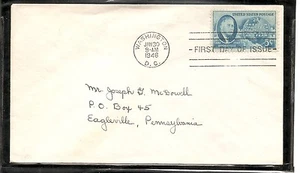 WASHINGTON
JAN 30
9-AM
1946
D.C.
UNITED STATES POSTAGE
5¢
FIRST DAY OF ISSUE
Mr Joseph G. McDowell
P.O. Box 45
Eagleville, Pennsylvania